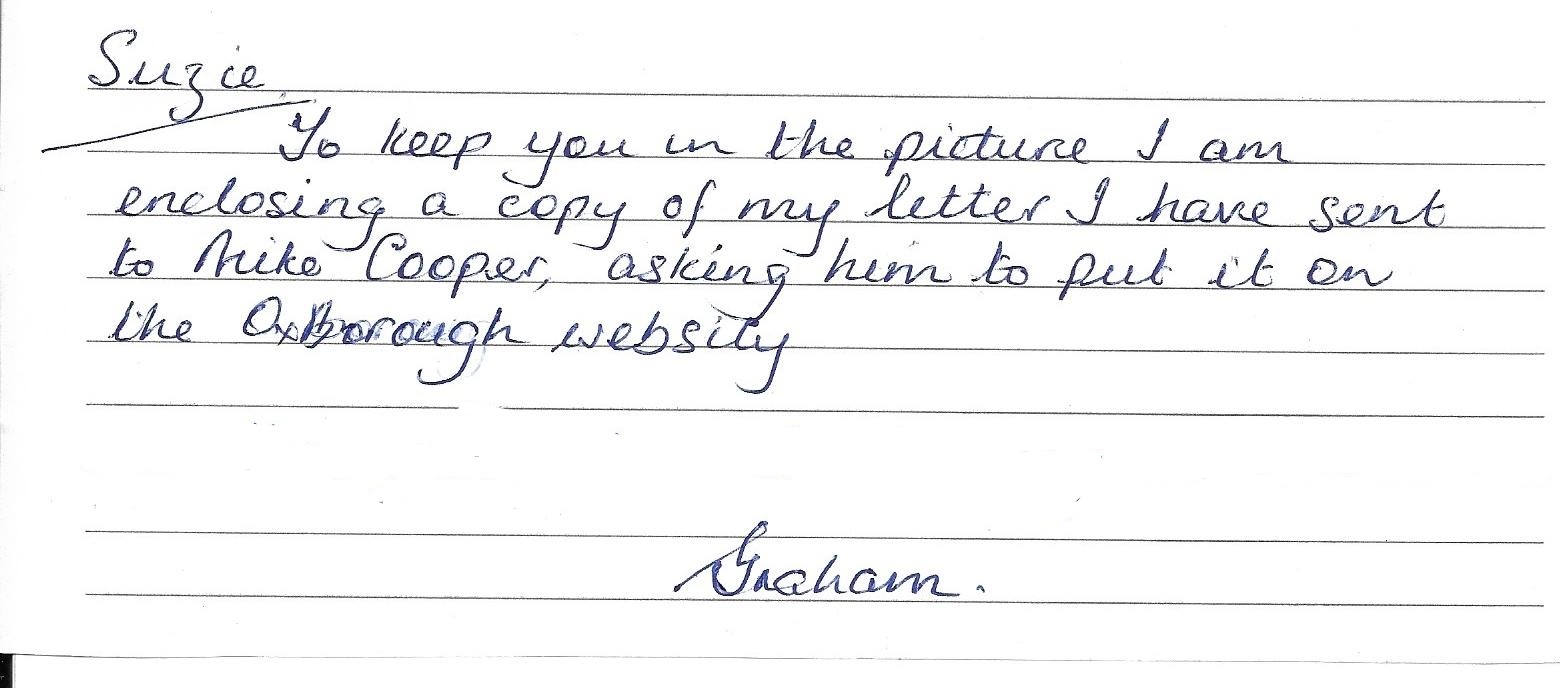 Suzie
To keep you in the picture I am
enclosing a copy of my letter I have sent
to Mike Cooper, asking him to put it on
the Oxborough websity
Graham.